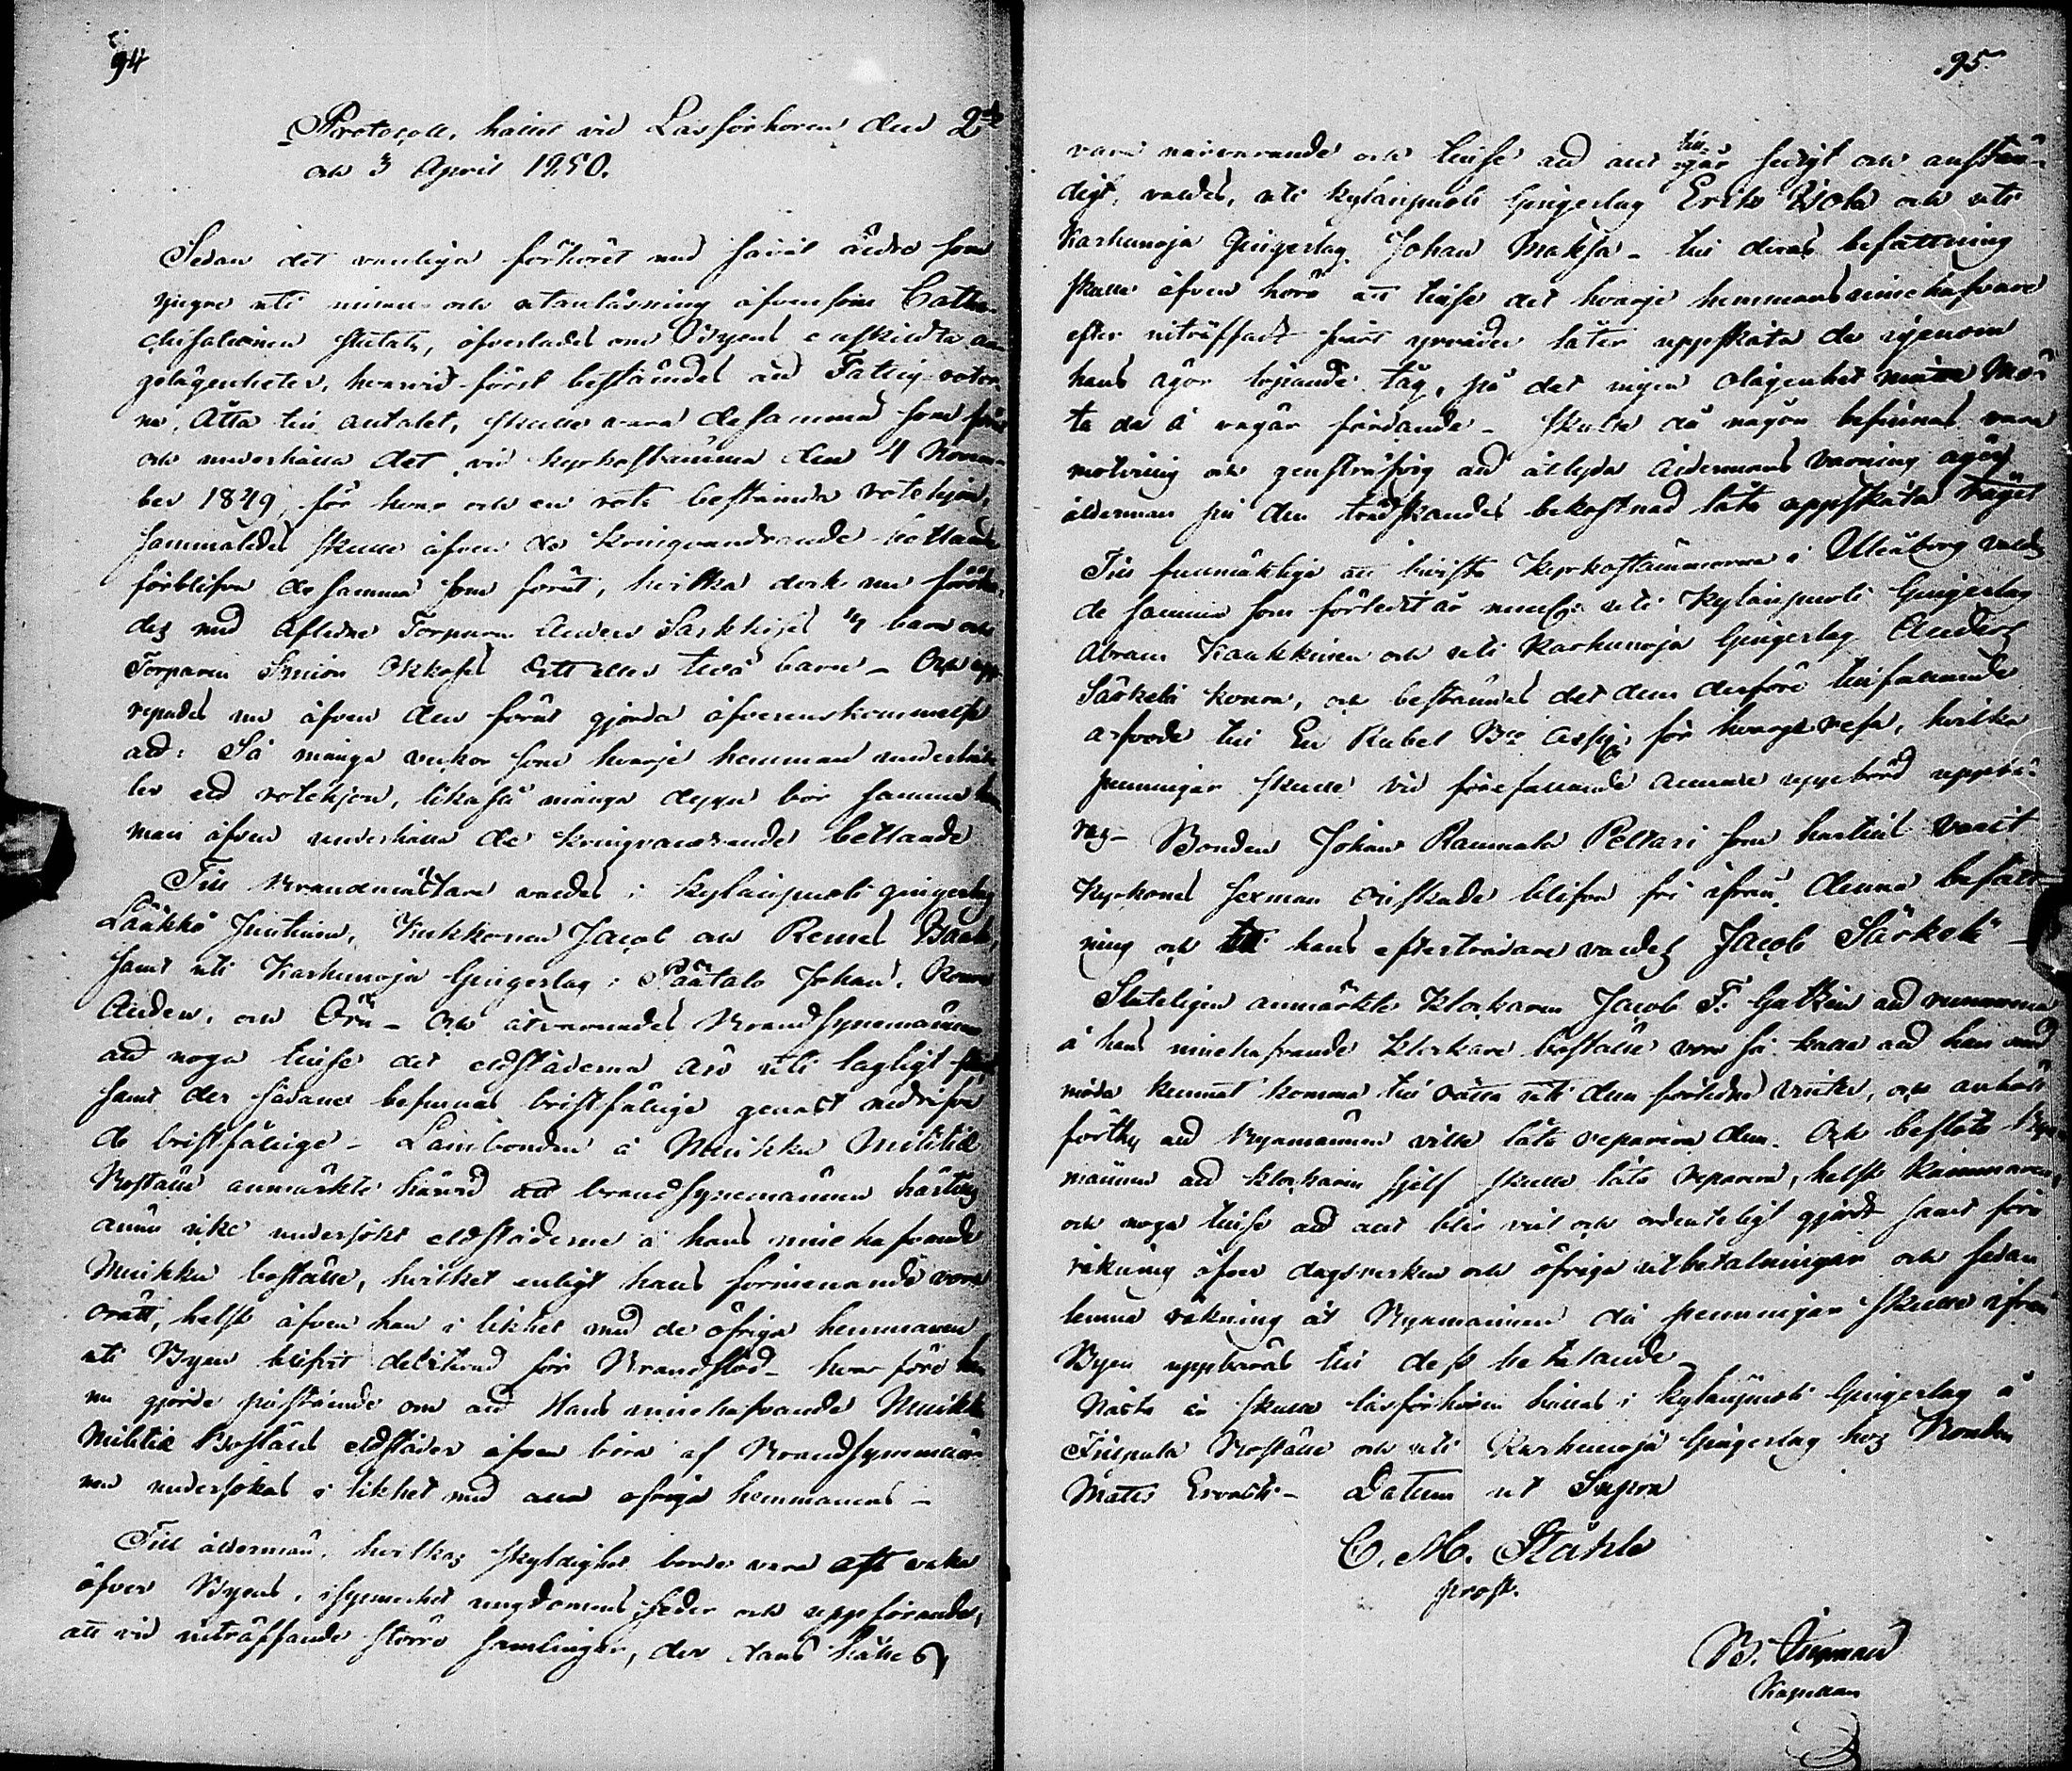 94
Protocoll, hållet vid Läsförhören den 2dra
och 3 April 1850.
Sedan det vanliga förhöret med såväl äldre som
yngre uti innan- och utanläsning äfvensom Cathe-
chisationen slutats, öfverlades om Byens enskildta an-
gelägenheter, hvarvid först bestämdes att Fattig-rotor-
na, Åtta till antalet, skulle vara desamma som förut
och underhålla det vid kyrkostämma den 4 Novem-
ber 1849, för hvar och en rote bestämda rotehjon,
sammaledes skulle äfven de kringvandrande bettlande
förblifva desamma som förut, hvilka dock nu föröka-
des med Aflidne Torparen Anders Sarkkises 4 barn och
Torparen Simon Okkoses Ett eller två barn – Och upp-
repades nu äfven den förut gjorda öfverenskommelse
att: Så många veckor som hvarje hemman underhål-
ler ett rotehjon, likaså många dygn bör samma hem-
man äfven underhålla de kringvandrande bettlande
Till Brandmästare valdes i Kylänpuoli gingerlag
Lääkkö Juntunen, Kukkonen Jacob och Remes
samt uti Karhunoja Gingerlag: Päätalo Johan,
Anders, och Örn – Och åtvarnades Brandsynemännen
att noga tillse det eldstäderna äro uti lagligt
samt der sådane befinnas bristfällige genast nedrifva
de bristfällige – Lambonden å Muikku Militie
Boställe anmärkte härvid att brandsynemännen härtills
ännu icke undersökt eldstäderne å hans innehafvande
Muikku boställe, hvilket enligt hans förmenande vore
orätt, helst äfven han i likhet med de öfriga hemmanen
uti Byen blifvit debiterad för Brandstod – hvarföre han
nu gjorde påstående om att Hans innehafvande Muikku
Militie Boställes eldstäder äfven böra af Brandsynemän-
nen undersökas i likhet med alla öfriga hemmanens –
Till ålderman, hvilkas skyldighet borde vara att vaka
öfver Byens, isynnerhet ungdomens seder och uppförande,
att vid inträffande större samlingar, der dans hålles,
95.
vara närvarande och tillse att allt till-
går sedigt och anstän-
digt, valdes, uti Kylänpuoli Gingerlag Erik och uti
Karhunoja Gingerlag Johan Maksa – till deras befattning
skulle äfven höra att tillse det hvarje hemmans innehafvare
efter inträffadt svårt yrväder låter uppskåta de igenom
hans ägor löpande tåg, på det ingen olägenhet må mö-
ta de å vägar färdande – Skulle då någon befinnas vara
motvillig och genstråfvig att åtlyda åldermans varning äger
ålderman på den tredskandes bekostnad låta uppskåta vägen
Till fullmäktige att bivista Kyrkostämmorna i Uleåborg valdes
de samma som förledet år nemligen uti Kylänpuoli Gingerlag
Abram Kaukkinen och uti Karhunoja Gingerlag Anders
Särkelä konra, och bestämdes det dem derföre tillfallande
arfvode till En Rubel B:co Assig: för hvarje resa, hvilka
penningar skulle vid förefallande annan uppebörd uppebä-
ras – Bonden Johan Raumala Peltari som hartill varit
Kyrkones sexman önskade blifva fri ifrån denna befatt-
ning och till hans efterträdare valdes Jacob Särkelä –
Sluteligen anmärkte Klockaren Jacob F. att rummena
å hans innehafvande klockare boställe voro så kalla att han med
möda kunnat komma till rätta uti dem förledne vinter, och anhöll
förthy att Byamännen ville låta reparera dem. Och beslöto Bya-
männen att klockaren sjelf skulle låta reparera, helst kammaren
och noga tillse att allt blir väl och ordenteligt gjordt samt föra
räkning öfver dagsverken och öfriga utbetalningar och sedan
lemna räkning åt Byamännen då penningar skulle ifrån
Byen uppbäras till dess betalande
Nästa år skulle läsförhören hållas i Kylänpuoli Gingerlag å
Boställe och uti Karhunoja Gingerlag hos Bonden
Matts Ervasti – Datum ut Supra
C. M. Ståhle
prost.
Kapellan